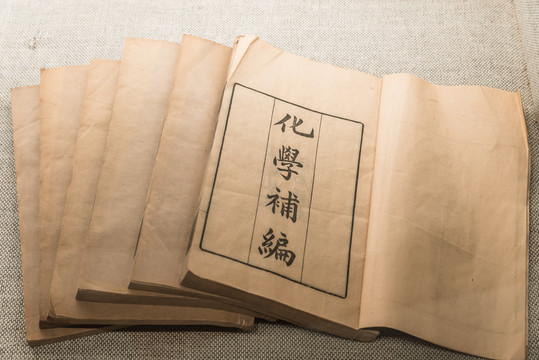 化學補編